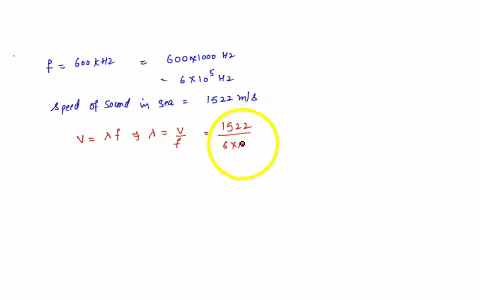 f = 600 KHZ = 600x1000 HZ
= 6 x 10⁵ HZ
Speed of sound in sea = 1522 m/s
V = λ f ⇒ λ = V/f = 1522/6 x 1